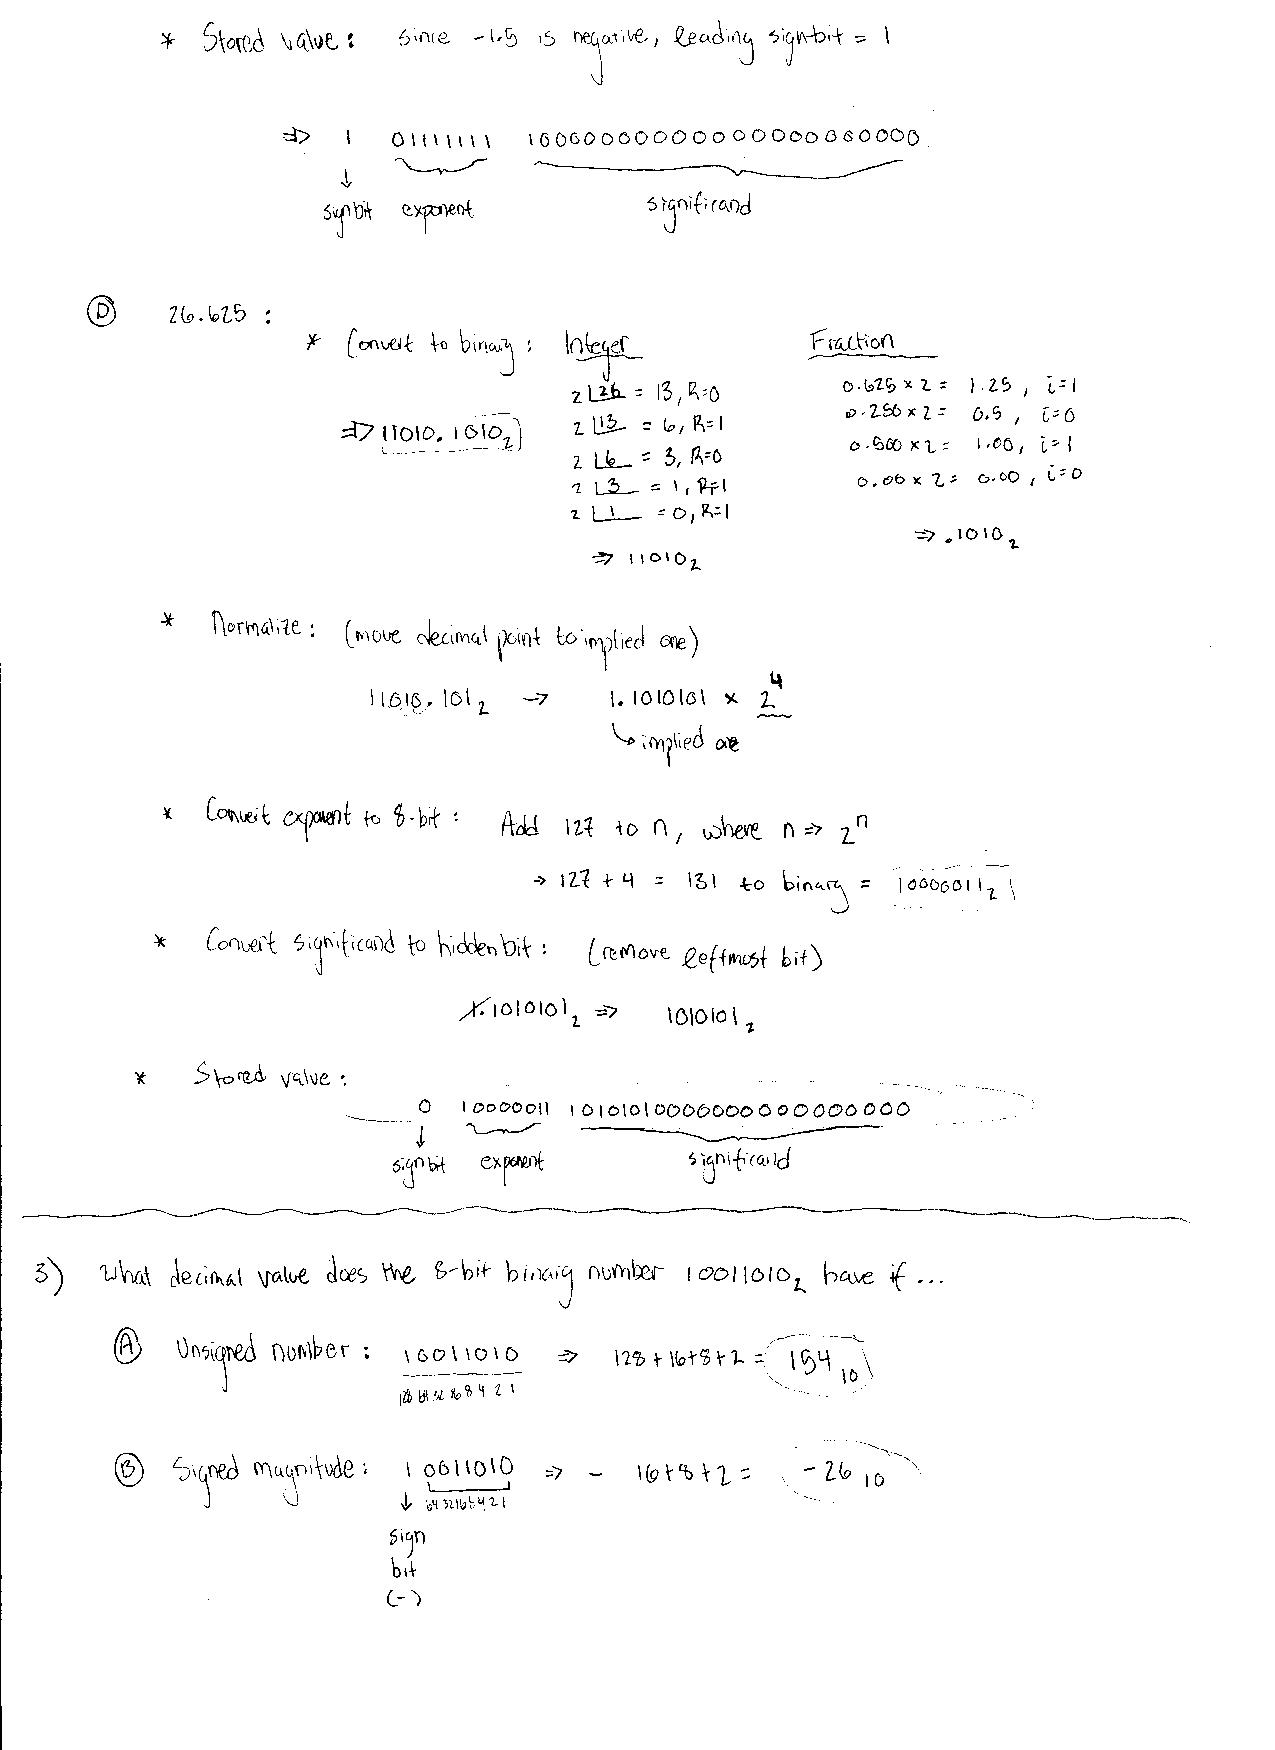 * Stored value: since -1.5 is negative, leading signbit = 1
=> 1 01111111 10000000000000000000000
↓
signbit exponent significand
(D) 26.625 :
* Convert to binary: Integer Fraction
2 26 = 13, R=0 0.625 x 2 = 1.25, i=1
=> 11010.1010₂ 2 13 = 6, R=1 0.250 x 2 = 0.5, i=0
2 6 = 3, R=0 0.500 x 2 = 1.00, i=1
2 3 = 1, R=1 0.00 x 2 = 0.00, i=0
2 1 = 0, R=1
=> 11010₂ => .1010₂
* Normalize: (move decimal point to implied one)
11010.101₂ -> 1.1010101 x 2⁴
↳ implied one
* Convert exponent to 8-bit: Add 127 to n, where n => 2ⁿ
-> 127 + 4 = 131 to binary = 10000011₂
* Convert significand to hidden bit: (remove leftmost bit)
1.1010101₂ => 1010101₂
* Stored value:
0 10000011 10101010000000000000000
↓
signbit exponent significand
3) What decimal value does the 8-bit binary number 10011010₂ have if...
(A) Unsigned number: 10011010 => 128+16+8+2 = 154₁₀
128 64 32 16 8 4 2 1
(B) Signed magnitude: 1 0011010 => - 16+8+2 = -26₁₀
↓ 64 32 16 8 4 2 1
sign
bit
(-)